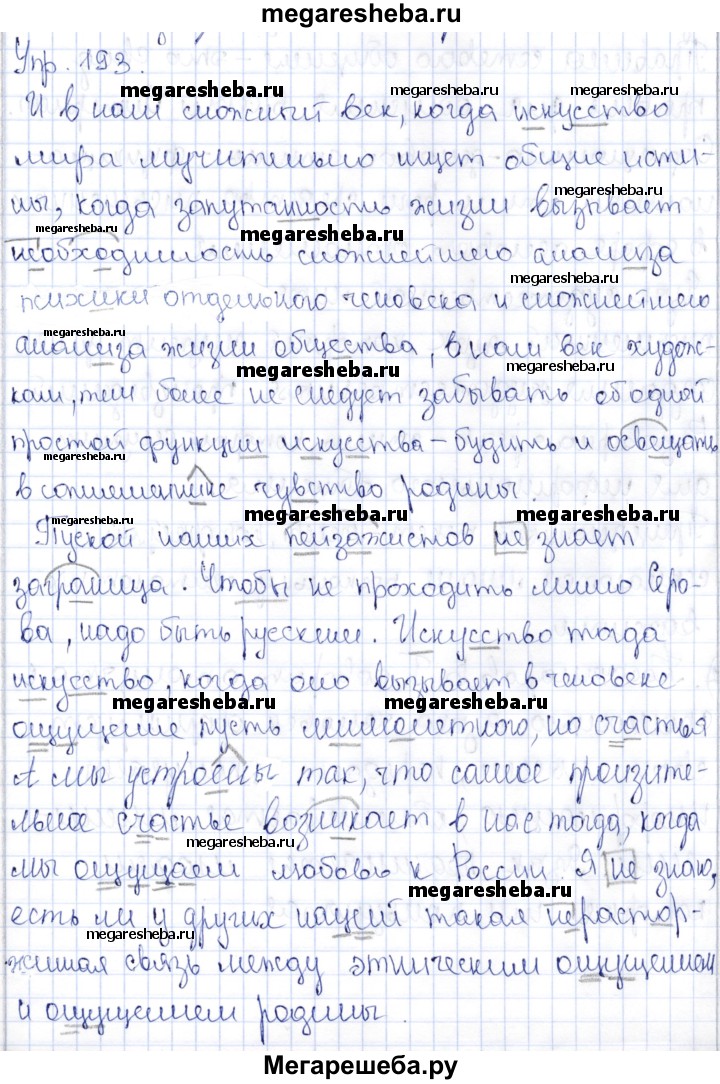 megaresheba.ru
Упр. 193.
megaresheba.ru megaresheba.ru
И в наш сложный век, когда искусство
мира мучительно ищет общие исти-
ны, когда запутанность жизни вызывает
megaresheba.ru
megaresheba.ru
необходимость сложнейшего анализа
megaresheba.ru
психики отдельного человека и сложнейшего
megaresheba.ru
анализа жизни общества, в наш век худож-
megaresheba.ru
кам, тем более не следует забывать об одной
megaresheba.ru
простой функции искусства – будить и освещать
megaresheba.ru
в соплеменнике чувство родины.
megaresheba.ru megaresheba.ru megaresheba.ru
Пускай наших пейзажистов не знает
заграница. Чтобы не проходить мимо Серо-
ва, надо быть русским. Искусство тогда
искусство, когда оно вызывает в человеке
megaresheba.ru megaresheba.ru
ощущение, пусть мимолетного, но счастья
А мы устроены так, что самое пронзите-
льное счастье возникает в нас тогда, когда
megaresheba.ru
мы ощущаем любовь к России. Я не знаю,
megaresheba.ru
есть ли у других наций такая нерастор-
megaresheba.ru
жимая связь между этническим ощущением
и ощущением родины.
Мегарешеба.ру